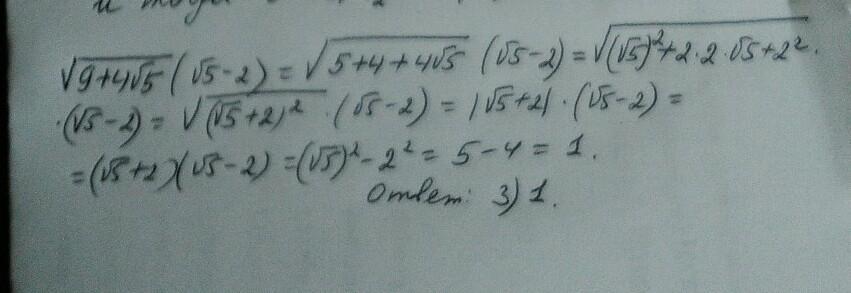 и тогда
√(9+4√5) (√5-2) = √(5+4+4√5) (√5-2) = √((√5)²+2·2·√5+2²) ·
·(√5-2) = √((√5+2)²) · (√5-2) = |√5+2| · (√5-2) =
= (√5+2)(√5-2) = (√5)²-2² = 5-4 = 1.
Ответ: 3) 1.